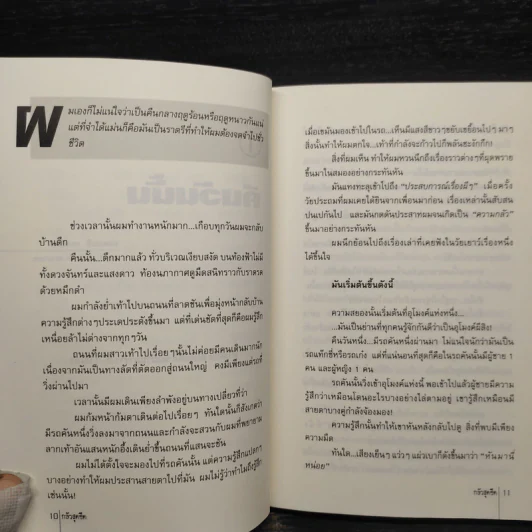 ผมเองก็ไม่แน่ใจว่าเป็นคืนกลางฤดูร้อนหรือฤดูหนาวกันแน่
แต่ที่จำได้แม่นก็คือมันเป็นราตรีที่ทำให้ผมต้องจดจำไปชั่ว
ชีวิต
ช่วงเวลานั้นผมทำงานหนักมาก...เกือบทุกวันผมจะกลับ
บ้านดึก
คืนนั้น...ดึกมากแล้ว ทั่วบริเวณเงียบสงัด บนท้องฟ้าไม่มี
ทั้งดวงจันทร์และแสงดาว ท้องนภากาศดูมืดสนิทราวกับราดรด
ด้วยหมึกดำ
ผมกำลังย่ำเท้าไปบนถนนที่ลาดชันเพื่อมุ่งหน้ากลับบ้าน
ความรู้สึกต่างๆประเดประดังขึ้นมา แต่ที่เด่นชัดที่สุดก็คือผมรู้สึก
เหนื่อยล้าไม่ต่างจากทุกๆวัน
ถนนที่ผมสาวเท้าไปเรื่อยๆนั้นไม่ค่อยมีคนเดินมากนัก
เนื่องจากมันเป็นทางลัดที่ตัดออกสู่ถนนใหญ่ คงมีเพียงแต่รถที่
วิ่งผ่านไปมา
เวลานั้นมีผมเดินเพียงลำพังอยู่บนทางเปลี่ยวที่ว่า
ผมก้มหน้าก้มตาเดินต่อไปเรื่อยๆ ทันใดนั้นก็สังเกตว่า
มีรถคันหนึ่งวิ่งลงมาจากถนนและกำลังจะสวนกับผมที่พยายาม
ลากเท้าอันแสนหนักอึ้งเดินย่ำขึ้นถนนที่แสนจะชัน
ผมไม่ได้ตั้งใจจะมองไปที่รถคันนั้น แต่ความรู้สึกแปลกๆ
บางอย่างทำให้ผมประสานสายตาไปที่มัน ผมไม่รู้ว่าทำไมถึงรู้สึก
เช่นนั้น!
10 กลัวสุดขีด
เมื่อเขม้นมองเข้าไปในรถ...เห็นมีแสงสีขาวๆขยับเขยื้อนไปๆมาๆ
สิ่งนั้นทำให้ผมตกใจ...เท้าที่กำลังจะก้าวไปก็พลันชะงักกึก!
สิ่งที่ผมเห็น ทำให้ผมหวนนึกถึงเรื่องราวต่างๆที่ผุดพราย
ขึ้นมาในสมองอย่างกระทันหัน
มันแทงทะลุเข้าไปถึง "ประสบการณ์เรื่องผีๆ" เมื่อครั้ง
วัยประถมที่ผมเคยได้ยินจากเพื่อนมาก่อน เรื่องเหล่านั้นสับสน
ปนเปกันไป และมันกดดันประสาทผมจนเกิดเป็น "ความกลัว"
ขึ้นมาอย่างกระทันหัน
ผมนึกย้อนไปถึงเรื่องเล่าที่เคยฟังในวัยเยาว์เรื่องหนึ่ง
ได้ขึ้นใจ
มันเริ่มต้นขึ้นดังนี้
ความสยองนั้นเริ่มต้นที่อุโมงค์แห่งหนึ่ง...
...มันเป็นย่านที่ทุกคนรู้จักกันดีว่าเป็นอุโมงค์ผีสิง!
คืนวันหนึ่ง...มีรถคันหนึ่งผ่านมา ไม่แน่ใจนักว่ามันเป็น
รถแท็กซี่หรือรถเก๋ง แต่ที่แน่นอนที่สุดก็ในรถคันนั้นมีผู้ชาย 1
คน และผู้หญิง 1 คน
รถคันนั้นวิ่งเข้าอุโมงค์แห่งนี้ พอเข้าไปแล้วผู้ชายมีความ
รู้สึกว่าเหมือนโดนอะไรบางอย่างไล่ตามอยู่ เขารู้สึกเหมือนมี
สายตาบางคู่กำลังจ้องมอง!
ความรู้สึกนั้นทำให้เขาหันหลังกลับไปดู สิ่งที่พบมีเพียง
ความมืด
ทันใด...เสียงเย็นๆแว่วๆแผ่วเบาก็ดังขึ้นมาว่า "หันมานี่
หน่อย"
กลัวสุดขีด 11